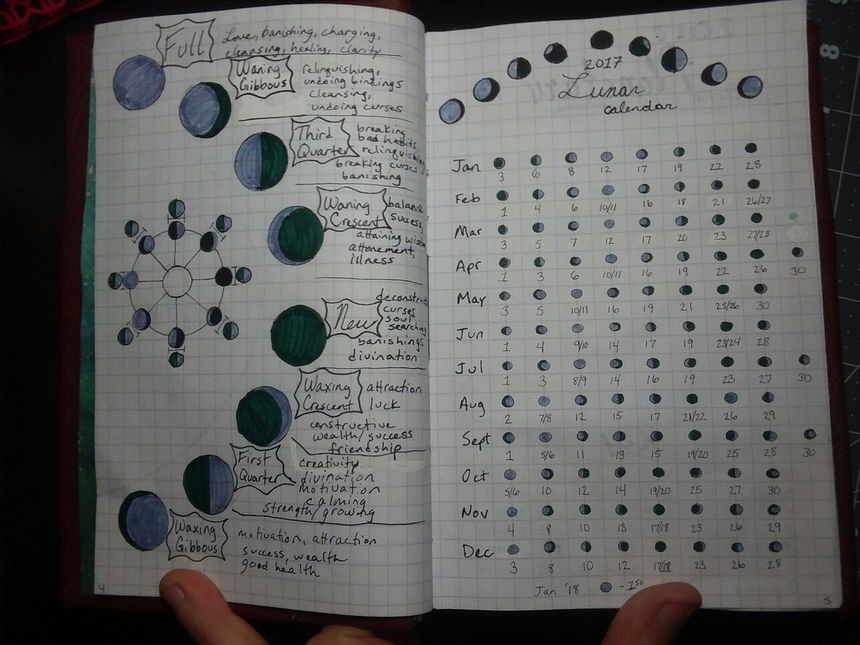 Full
Love, banishing, charging,
cleansing, healing, clarity
Waning
Gibbous
relinquishing,
undoing bindings
cleansing,
undoing curses
Third
Quarter
breaking
bad habits
relinquishing
breaking curses
banishing
Waning
Crescent
balance
success,
attaining wisdom
attonement,
illness
New
deconstruc
curses
soul
searching
banishings
divination
Waxing
Crescent
attraction
luck
constructive
wealth/success
friendship
First
Quarter
creativity
divination
motivation
calming
strength/growing
Waxing
Gibbous
motivation, attraction
success, wealth
good health
4
2017
Lunar
calendar
Jan
3 6 8 12 17 19 22 28
Feb
1 4 6 10/11 16 18 21 26/27
Mar
3 5 7 12 17 20 23 27/28
Apr
1 3 6 10/11 16 19 22 26 30
May
3 5 10/11 16 19 21 25/26 30
Jun
1 4 9/10 14 17 19 23/24 28
Jul
1 3 8/9 14 16 19 23 27 30
Aug
2 7/8 12 15 17 21/22 26 29
Sept
1 5/6 11 13 15 19/20 25 28 30
Oct
5/6 10 12 14 19/20 25 27 30
Nov
4 8 10 13 17/18 23 26 29
Dec
3 8 10 12 17/18 23 26 28
Jan '18 - 1st
5